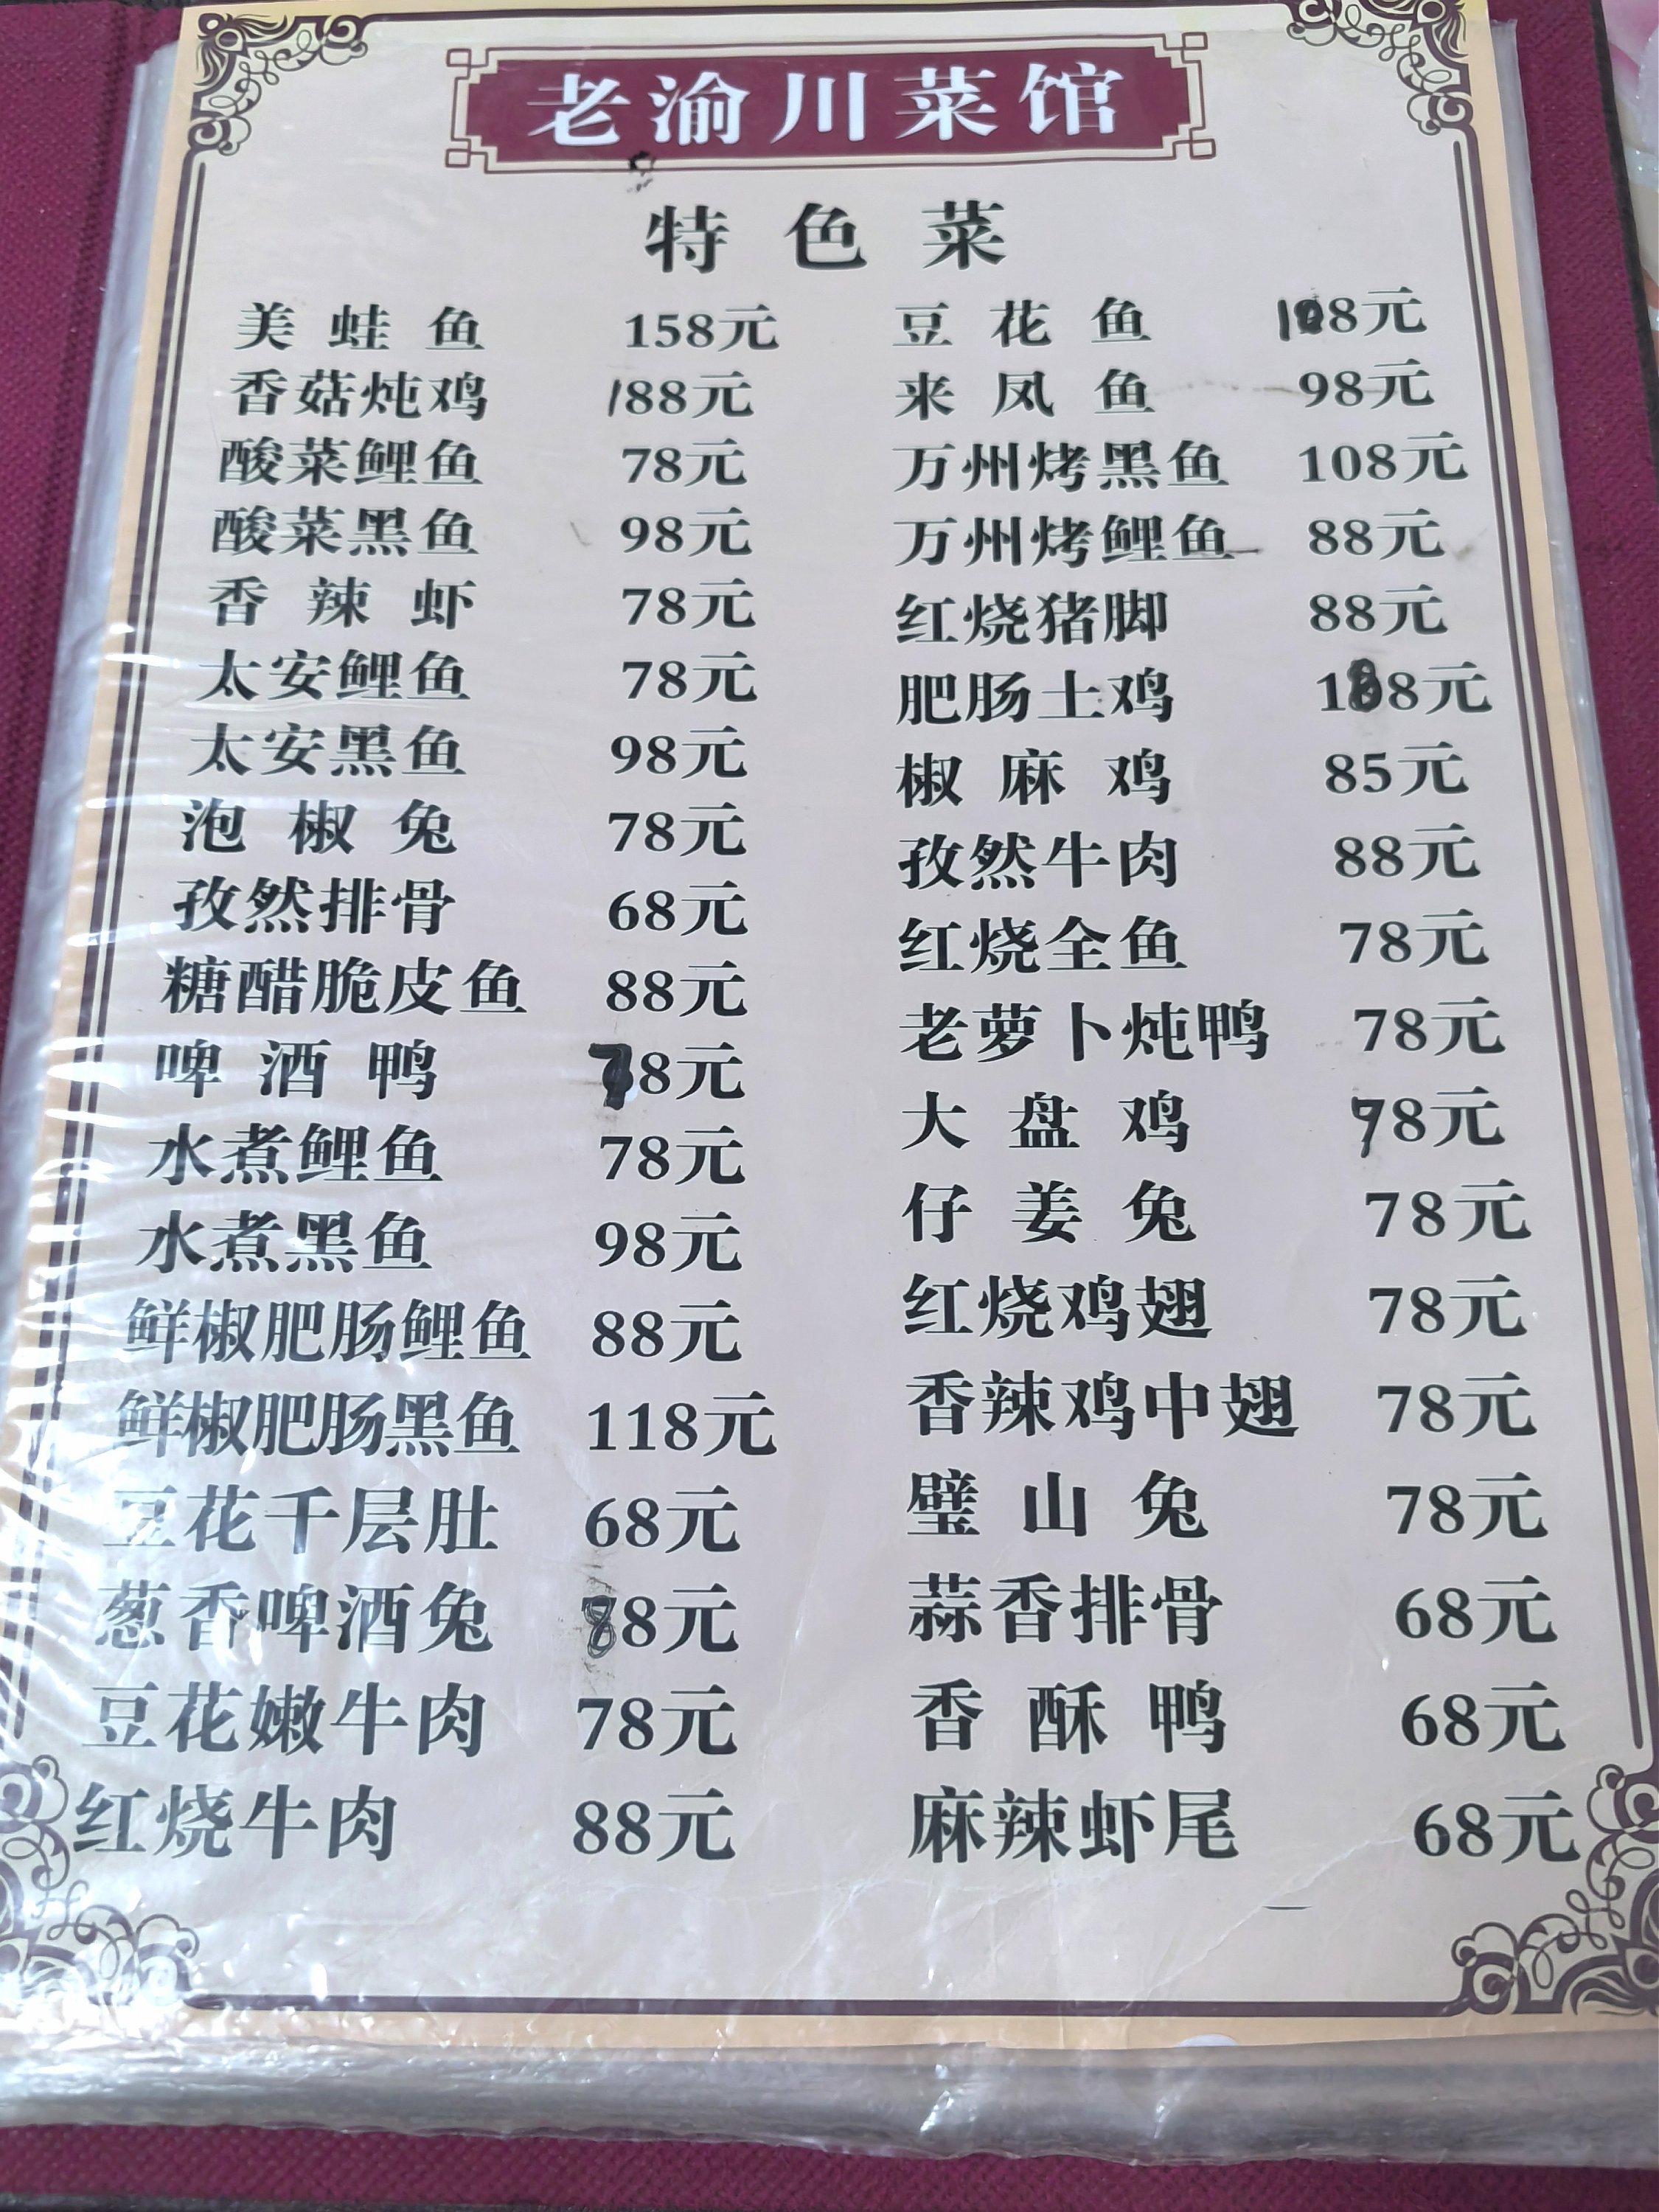 老渝川菜馆
特色菜
美蛙鱼 158元
香菇炖鸡 188元
酸菜鲤鱼 78元
酸菜黑鱼 98元
香辣虾 78元
太安鲤鱼 78元
太安黑鱼 98元
泡椒兔 78元
孜然排骨 68元
糖醋脆皮鱼 88元
啤酒鸭 78元
水煮鲤鱼 78元
水煮黑鱼 98元
鲜椒肥肠鲤鱼 88元
鲜椒肥肠黑鱼 118元
豆花千层肚 68元
葱香啤酒兔 88元
豆花嫩牛肉 78元
红烧牛肉 88元
豆花鱼 108元
来凤鱼 98元
万州烤黑鱼 108元
万州烤鲤鱼 88元
红烧猪脚 88元
肥肠土鸡 188元
椒麻鸡 85元
孜然牛肉 88元
红烧全鱼 78元
老萝卜炖鸭 78元
大盘鸡 78元
仔姜兔 78元
红烧鸡翅 78元
香辣鸡中翅 78元
璧山兔 78元
蒜香排骨 68元
香酥鸭 68元
麻辣虾尾 68元